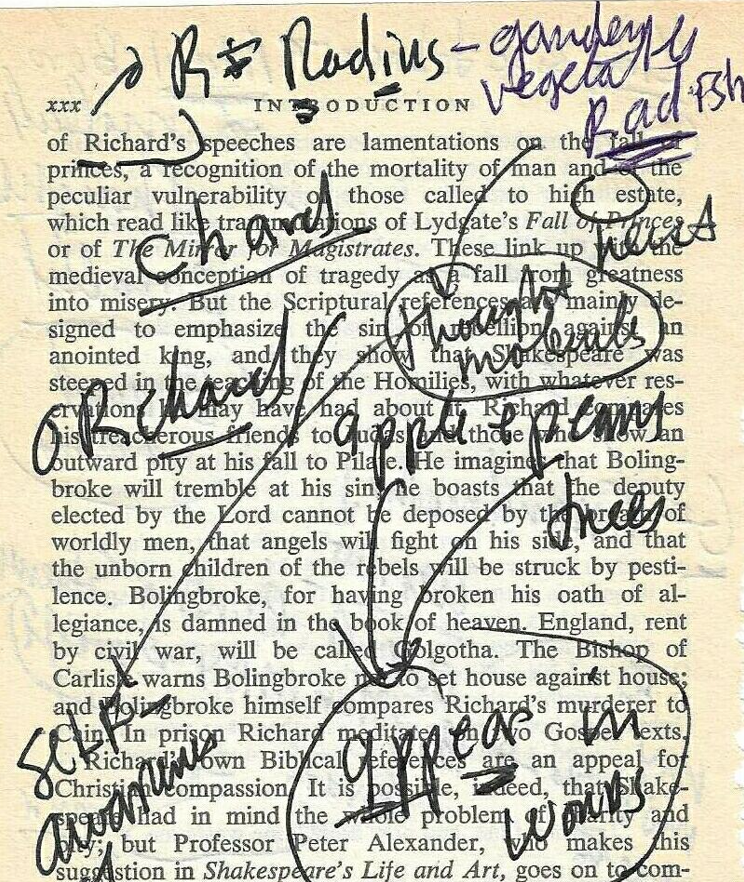 R = Radius - gardener's
vegeta
Radish
xxx INTRODUCTION
of Richard's speeches are lamentations on the fall of
princes, a recognition of the mortality of man and of the
peculiar vulnerability of those called to high estate,
which read like translations of Lydgate's Fall of Princes
or of The Mirror for Magistrates. These link up with the
chard
heart
medieval conception of tragedy as a fall from greatness
into misery. But the Scriptural references are mainly de-
signed to emphasize the sin of rebellion against an
thought
molecule
anointed king, and they show that Shakespeare was
steeped in the teaching of the Homilies, with whatever res-
ORchard
ervations he may have had about it. Richard compares
apple + pears
his treacherous friends to Judas and those who show an
outward pity at his fall to Pilate. He imagines that Boling-
broke will tremble at his sin; he boasts that the deputy
elected by the Lord cannot be deposed by the breath of
trees
worldly men, that angels will fight on his side, and that
the unborn children of the rebels will be struck by pesti-
lence. Bolingbroke, for having broken his oath of al-
legiance, is damned in the book of heaven. England, rent
by civil war, will be called Golgotha. The Bishop of
Carlisle warns Bolingbroke not to set house against house;
and Bolingbroke himself compares Richard's murderer to
Cain. In prison Richard meditates on two Gospel texts.
self-
awareness
appear in
words
Richard's own Biblical references are an appeal for
Christian compassion. It is possible, indeed, that Shake-
speare had in mind the whole problem of charity and
pity; but Professor Peter Alexander, who makes this
suggestion in Shakespeare's Life and Art, goes on to com-